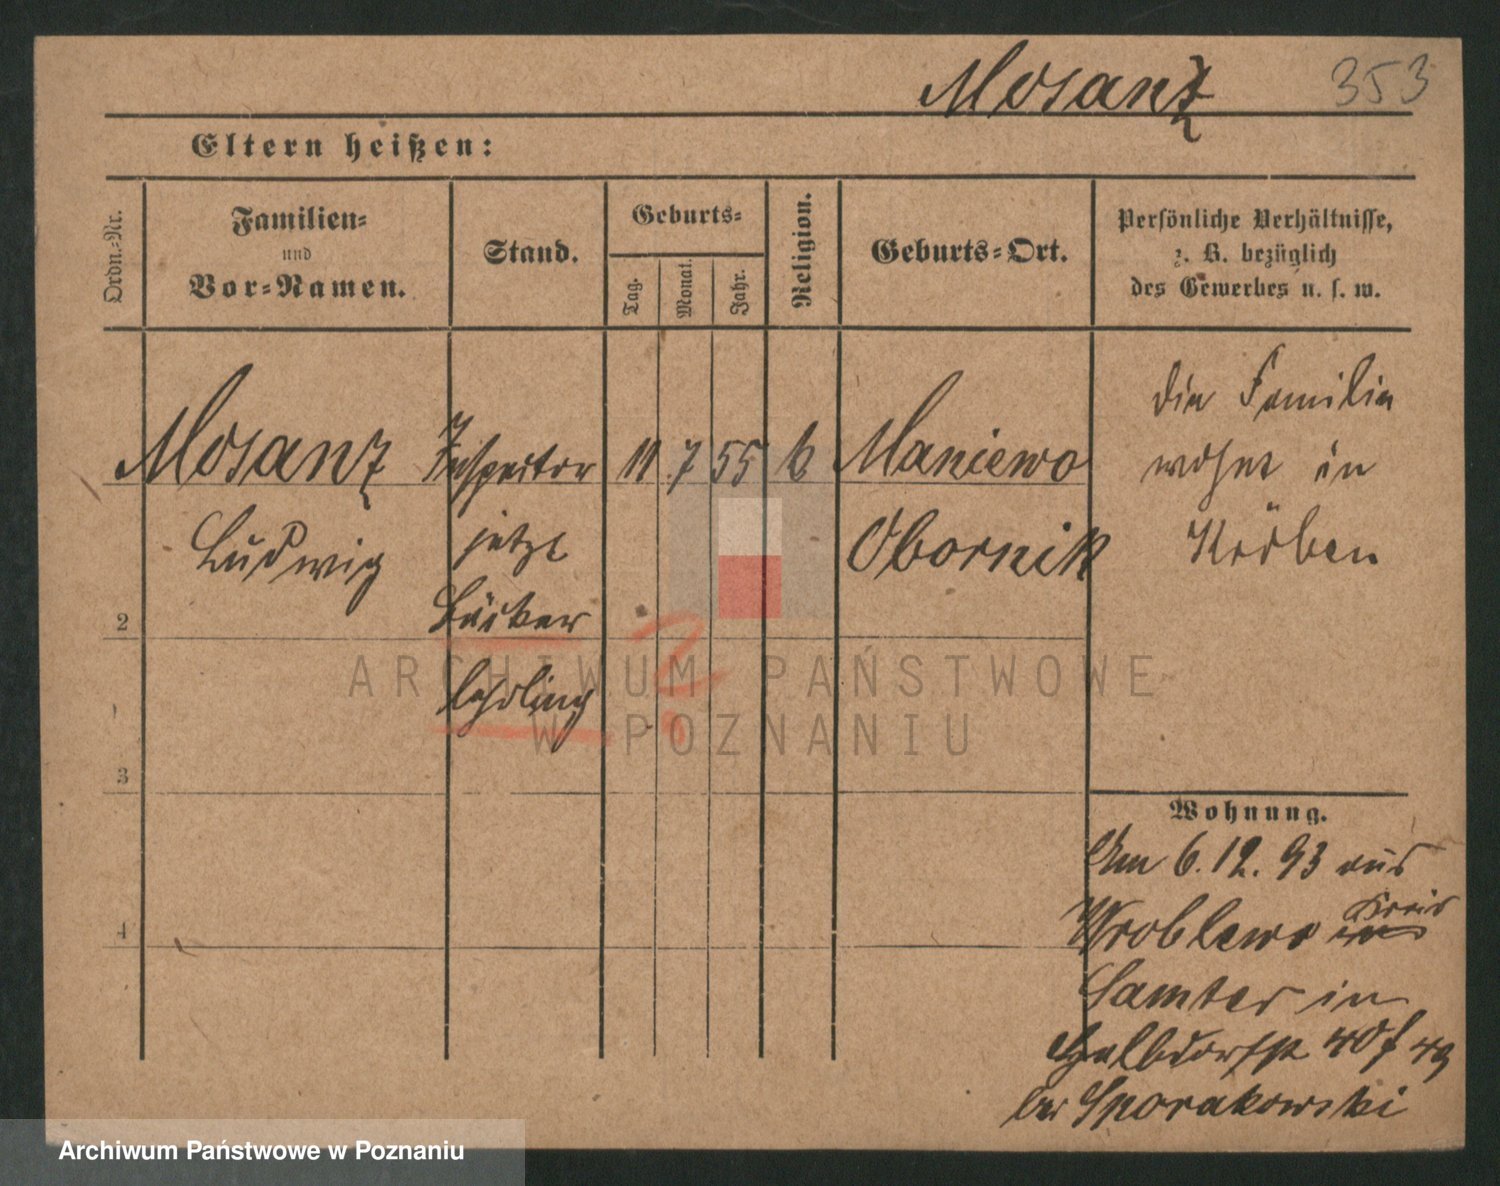 Mosanz
353
Eltern heißen:
Ordn.-Nr.
Familien-
und
Vor-Namen.
Stand.
Geburts-
Tag.
Monat.
Jahr.
Religion.
Geburts-Ort.
Persönliche Verhältnisse,
z. B. bezüglich
des Gewerbes u. s. w.
Mosanz Inspector 11 7 55 k. Maniewo
Ludwig jetzt Obornik
Bäcker
lehrling
die Familie
wohnt in
2
3
4
?
Wohnung.
Am 6.12.93 aus
Wroblewo Kreis
Samter in
Halbdorfstr
bei Sporakowski
ARCHIWUM PAŃSTWOWE
W POZNANIU
Archiwum Państwowe w Poznaniu